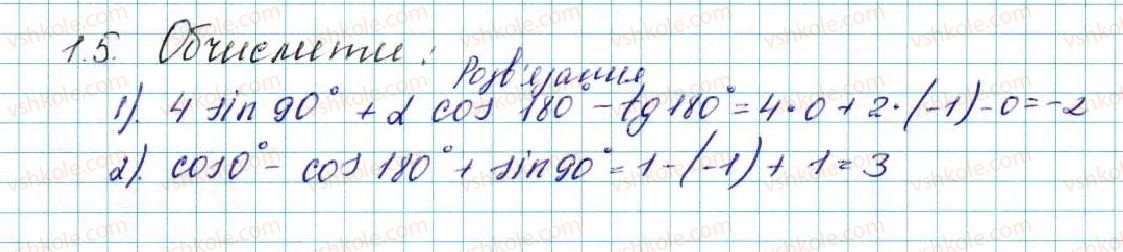 1.5. Обчислити:
Розв'язання
1). 4 sin 90° + 2 cos 180° - tg 180° = 4 • 0 + 2 • (-1) - 0 = -2
2). cos 0° - cos 180° + sin 90° = 1 - (-1) + 1 = 3